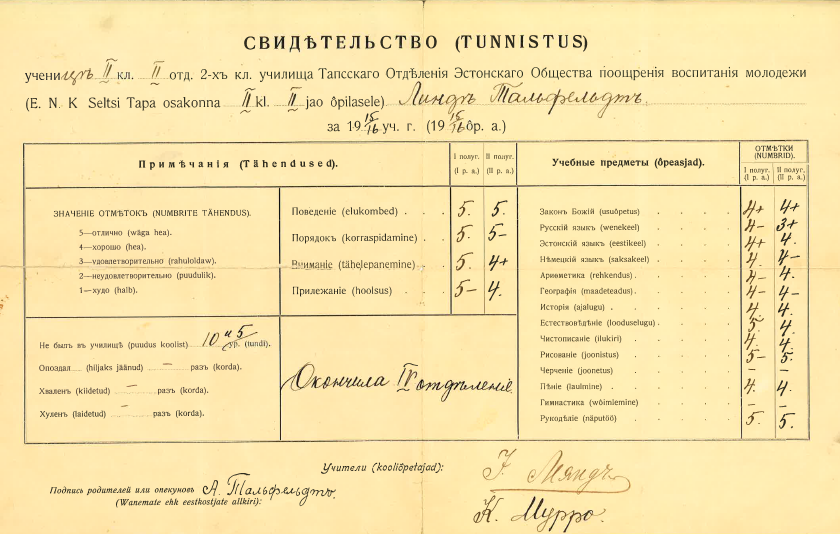 СВИДѢТЕЛЬСТВО (TUNNISTUS)
учениць II кл. II отд. 2-хъ кл. училища Тапсскаго Отдѣленія Эстонскаго Общества поощренія воспитанія молодежи
(E. N. K Seltsi Tapa osakonna II kl. II jao ôpilasele) Линдъ Тальфельдтъ.
за 19 15/16 уч. г. (19 15/16 ôp. a.)
Примѣчанія (Tähendused).
I полуг. (I p. a.)
II полуг. (II p. a.)
Учебные предметы (ôpeasjad).
ОТМѢТКИ (NUMBRID).
I полуг. (I p. a.)
II полуг. (II p. a.)
ЗНАЧЕНІЕ ОТМѢТОКЪ (NUMBRITE TÄHENDUS).
5—отлично (wäga hea).
4—хорошо (hea).
3—удовлетворительно (rahuloldaw).
2—неудовлетворительно (puudulik).
1—худо (halb).
Поведеніе (elukombed) . . . 5. 5.
Порядокъ (korraspidamine) . . 5. 5-
Вниманіе (tähelepanemine) . . 5. 4+
Прилежаніе (hoolsus) . . . 5- 4.
Законъ Божій (usuôpetus) . . . . 4+ 4+
Русскій языкъ (wenekeel) . . . . 4- 3+
Эстонскій языкъ (eestikeel) . . . . 4+ 4.
Нѣмецкій языкъ (saksakeel) . . . . 4. 4-
Ариѳметика (rehkendus) . . . . 4- 4.
Географія (maadeteadus) . . . . 4- 4-
Исторія (ajalugu) . . . . 4. 4.
Естествовѣдѣніе (looduselugu) . . . . 5. 4.
Чистописаніе (ilukiri) . . . . 4. 4.
Рисованіе (joonistus) . . . . 5- 5.
Черченіе (joonetus) . . . . - -
Пѣніе (laulmine) . . . . 4. 4.
Гимнастика (wôimlemine) . . . . - -
Рукодѣліе (näputöö) . . . . 5. 5.
Не былъ въ училищѣ (puudus koolist) 10 и 5 ур. (tundi).
Опоздал (hiljaks jäänud) — разъ (korda).
Хваленъ (kiidetud) — разъ (korda).
Хуленъ (laidetud) — разъ (korda).
Окончила IV отдѣленіе.
Учители (kooliôpetajad):
Подпись родителей или опекуновъ А. Тальфельдтъ.
(Wanemate ehk eestkostjate allkiri):
К. Мурро.